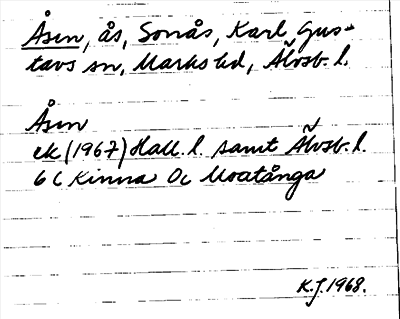 Åsen, ås, Sonås, Karl Gus-
tavs sn, Marks hd, Älvsb. l.
Åsen
ek (1967) Hall. l. samt Älvsb. l.
6 C Kinna Oc Moatånga
K.J. 1968.